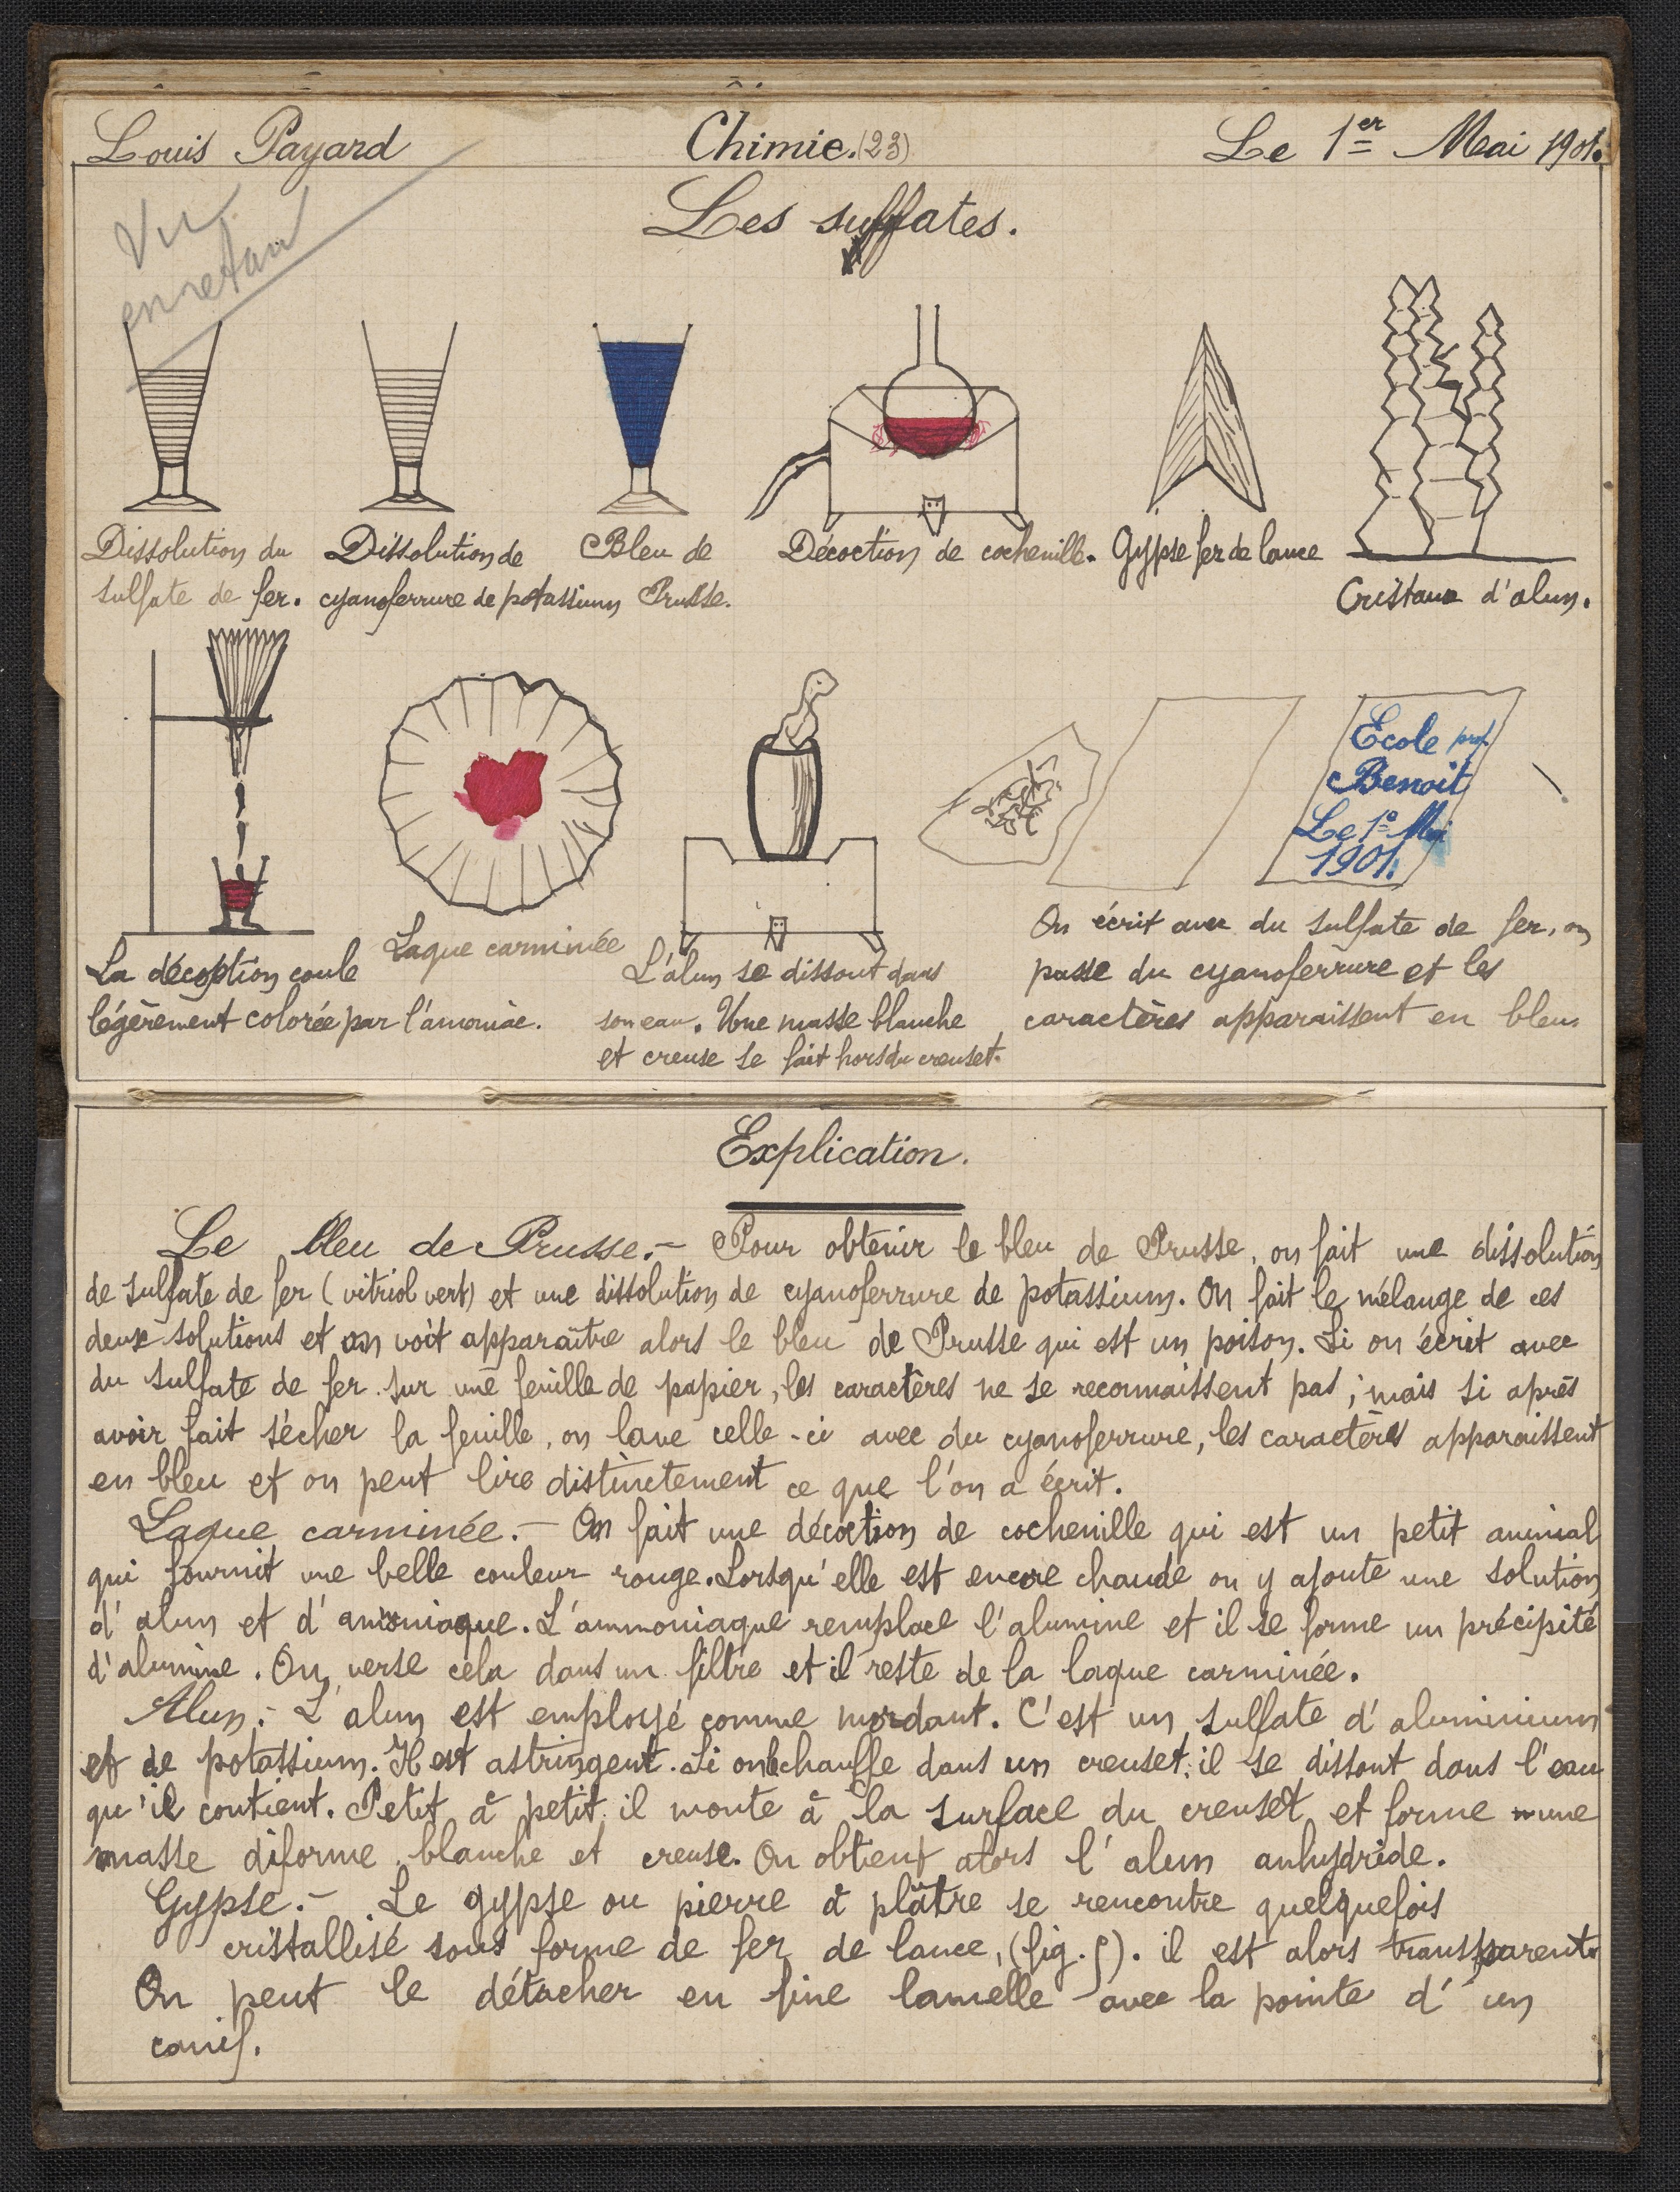 Louis Payard Chimie. (23) Le 1er Mai 1901.
Vu
en retard
Les sulfates.
Dissolution du
sulfate de fer.
Dissolution de
cyanoferrure de potassium
Bleu de
Prusse.
Décoction de cochenille.
Gypse fer de lance
Cristaux d'alun.
Ecole prof.
Benoit
Le 1er Mai
1901.
La décoption coule
légèrement colorée par l'amoniac.
Laque carminée
L'alun se dissout dans
son eau. Une masse blanche
et creuse se fait hors du creuset.
On écrit avec du sulfate de fer, on
passe du cyanoferrure et les
caractères apparaissent en bleu.
Explication.
Le bleu de Prusse.- Pour obtenir le bleu de Prusse, on fait une dissolution
de sulfate de fer (vitriol vert) et une dissolution de cyanoferrure de potassium. On fait le mélange de ces
deux solutions et on voit apparaître alors le bleu de Prusse qui est un poison. Si on écrit avec
du sulfate de fer sur une feuille de papier, les caractères ne se reconnaissent pas; mais si après
avoir fait sécher la feuille, on lave celle-ci avec du cyanoferrure, les caractères apparaissent
en bleu et on peut lire distinctement ce que l'on a écrit.
Laque carminée.- On fait une décoction de cochenille qui est un petit animal
qui fournit une belle couleur rouge. Lorsqu'elle est encore chaude on y ajoute une solution
d'alun et d'ammoniaque. L'ammoniaque remplace l'alumine et il se forme un précipité
d'alumine. On verse cela dans un filtre et il reste de la laque carminée.
Alun.- L'alun est employé comme mordant. C'est un sulfate d'aluminium
et de potassium. Il est astringent. Si on le chauffe dans un creuset, il se dissout dans l'eau
qu'il contient. Petit à petit il monte à la surface du creuset et forme une
masse diforme, blanche et creuse. On obtient alors l'alun anhydride.
Gypse.- Le gypse ou pierre à plâtre se rencontre quelquefois
cristallisé sous forme de fer de lance, (fig. 5). il est alors transparent.
On peut le détacher en fine lamelle avec la pointe d'un
canif.